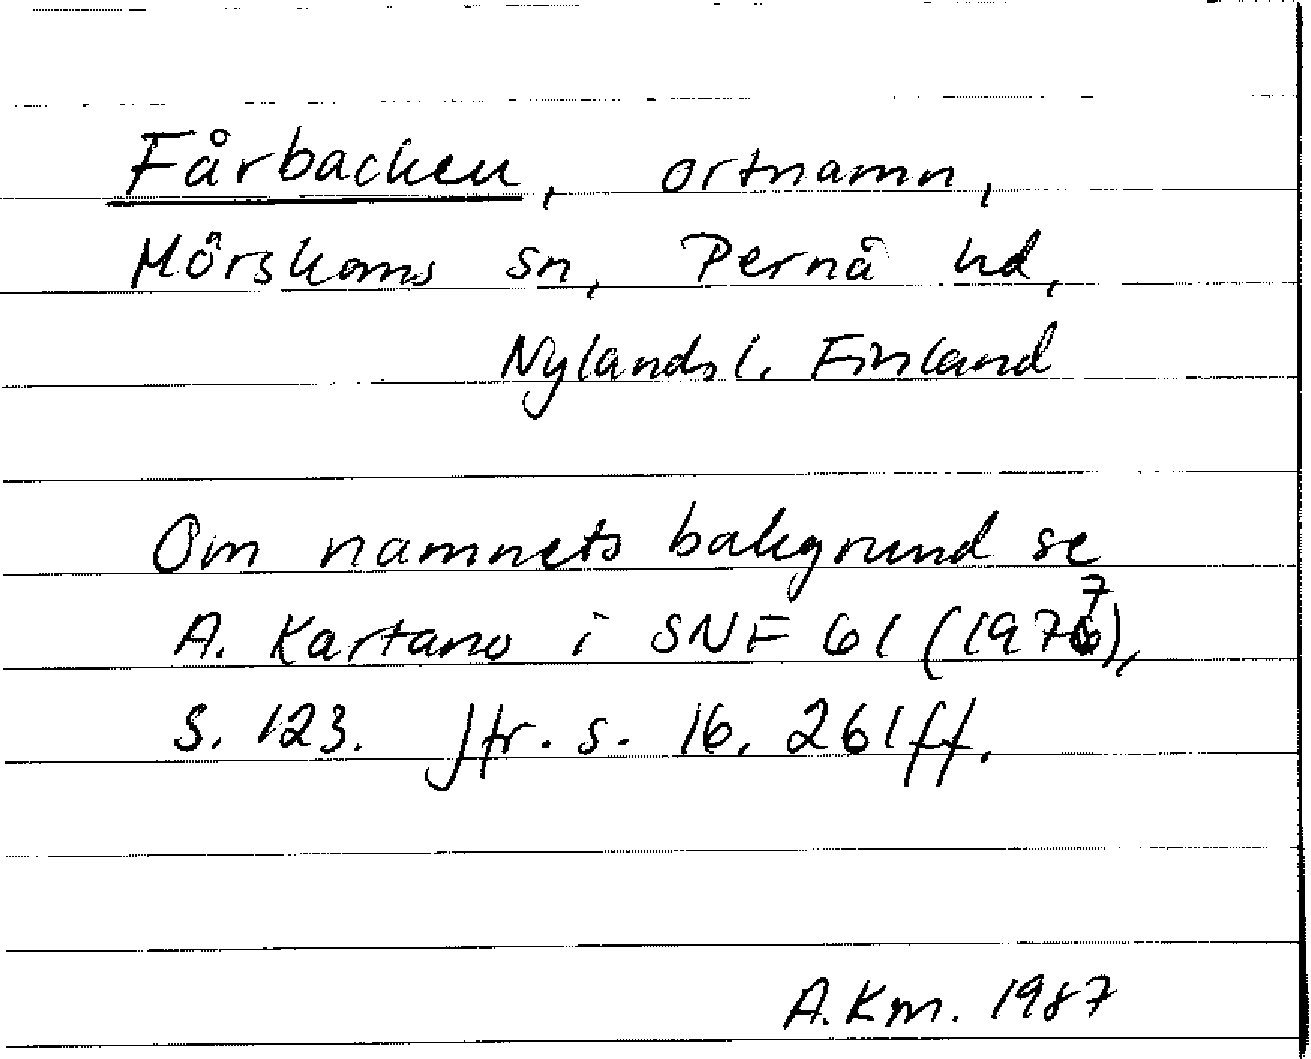 Fårbacken, ortnamn,
Mörskoms sn, Pernå hd,
Nylands l. Finland
Om namnets bakgrund se
A. Kartano i SNF 61 (1977),
s. 123. Jfr. s. 16, 261 ff.
A.Km. 1987